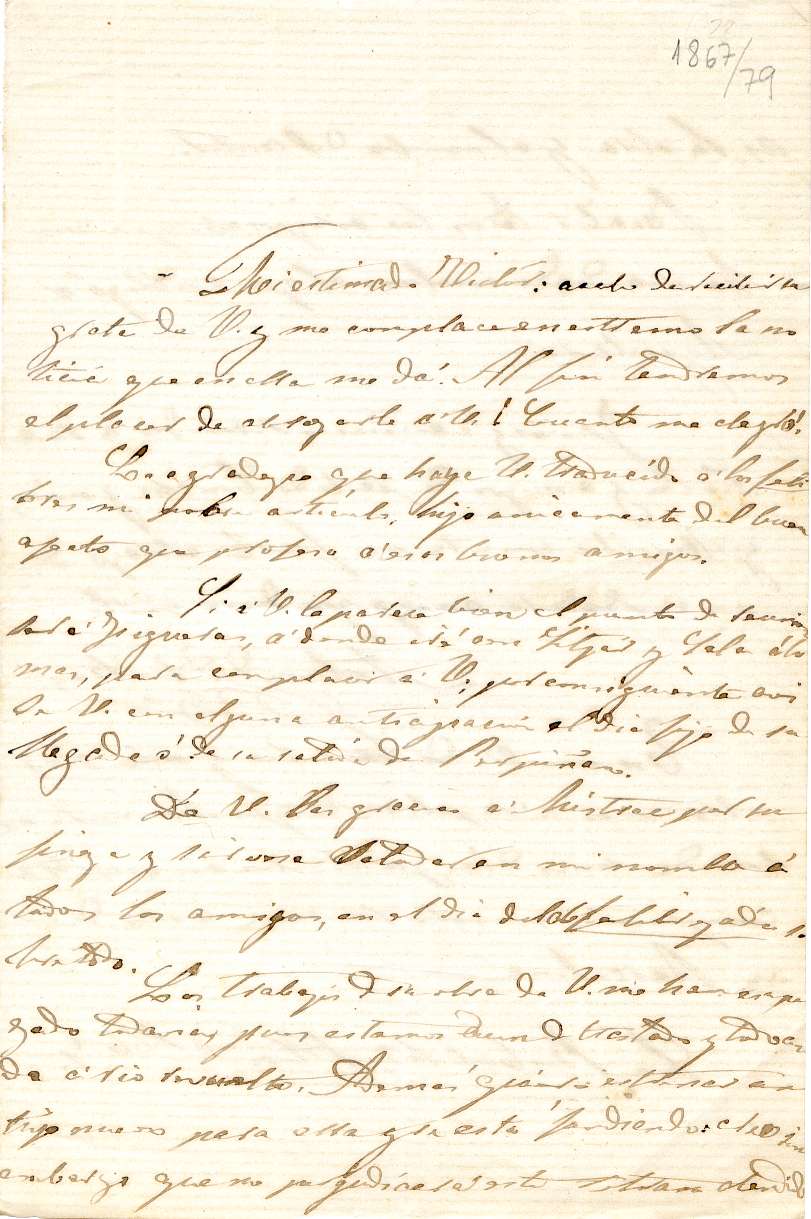 1867/79
Mi estimado Victor: acabo de recibir su
grata de V. y me complace en estremo la no
ticia que en ella me dá. Al fin tendremos
el placer de abrazarle á V.! Cuanto me alegro!
Le agradezco que haya V. traducido á los feli
bres mi pobre artículo, hijo unicamente del buen
afecto que profeso á esos buenos amigos.
Si á V. le parece bien el punto de reunion
será Figueras, á donde iré con Sitjar y Sala
mas, para complacer á V; por consiguiente avi
se V. con alguna anticipacion el dia fijo de su
llegada ó de su salida de Perpiñan.
Dé V. las gracias á Mistral por su
y sirvase saludar en mi nombre á
todos los amigos, en el dia de la felibrejada so
bre todo.
Los trabajos de su obra de V. no han empe
zado todavia, pues estamos aun de trastado y todo an
da á rio revuelto. Ademas quiero estrenar un
tipo nuevo para ella que se está fundiendo: creo sin
embargo que no perjudicará este atraso